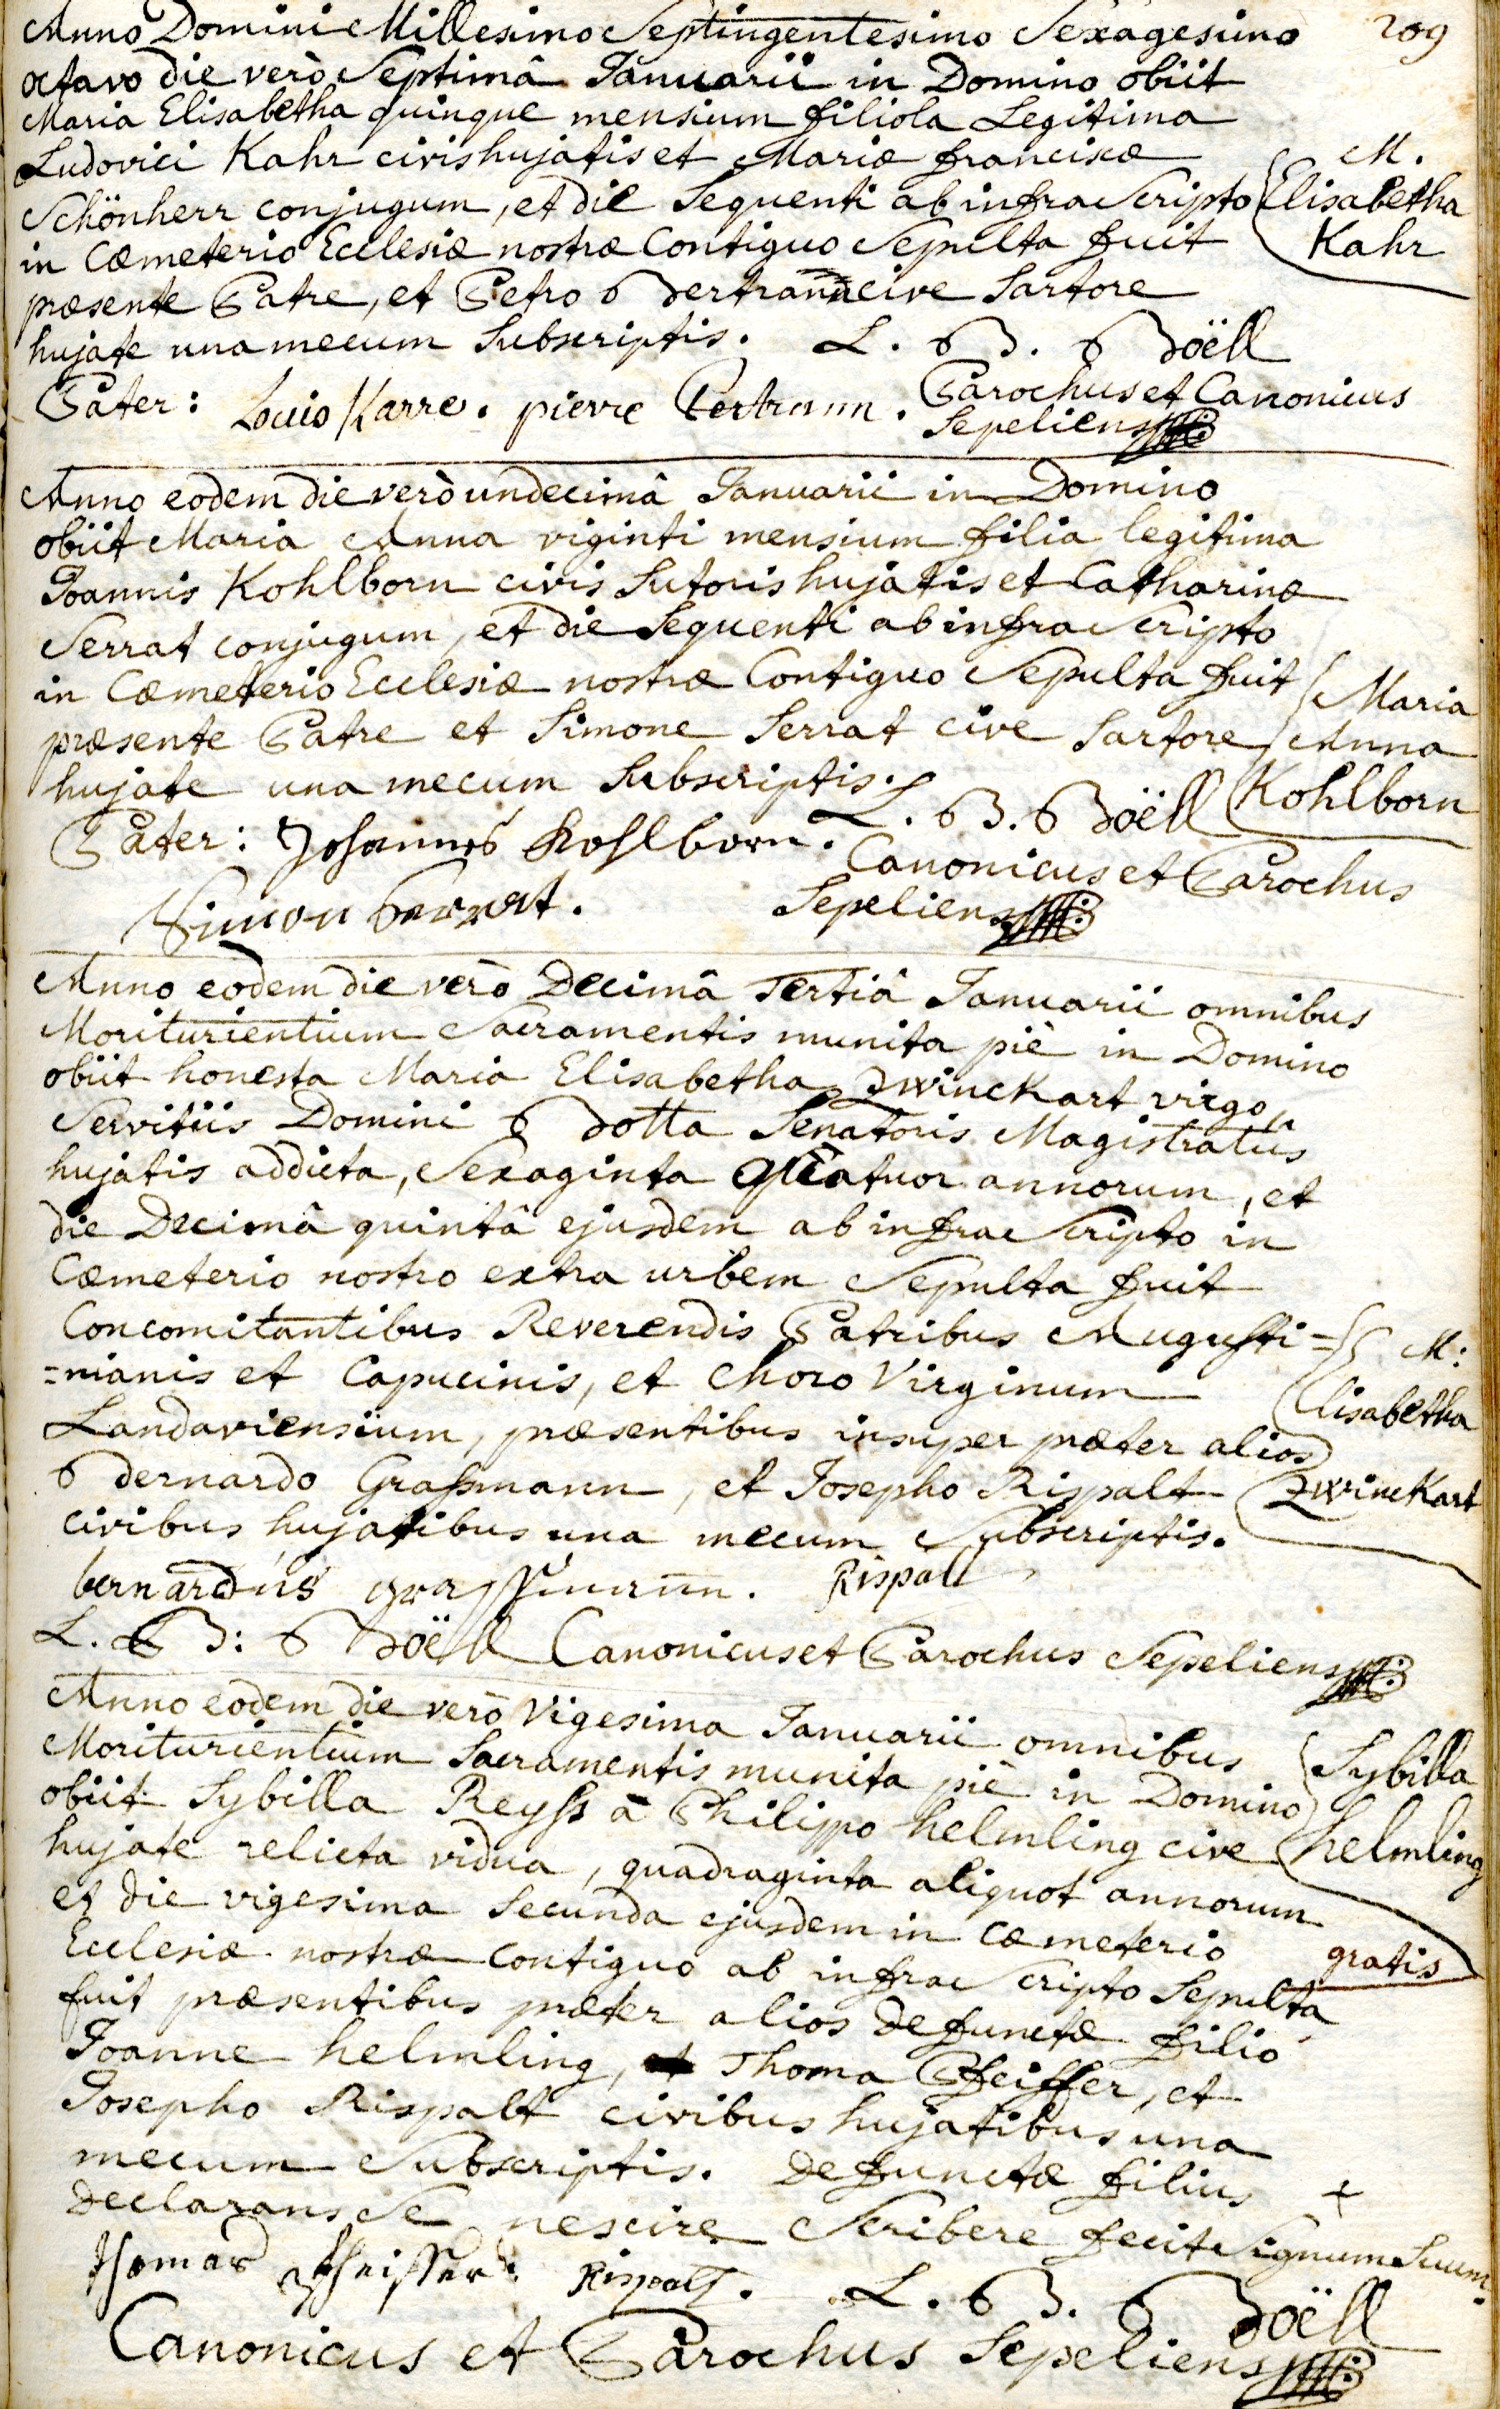 209
Anno Domini Millesimo Septingentesimo Sexagesimo
octavo die verò Septimâ Januarii in Domino obiit
Maria Elisabetha quinque mensium filiola Legitima
Ludovici Kahr civis hujatis et Mariæ franciscæ
Schönherr conjugum, et die Sequenti ab infra Scripto
in Cæmeterio Ecclesiæ nostræ Contiguo Sepulta fuit
præsente Patre, et Petro Bertrann cive Sartore
hujate una mecum Subscriptis. L. B. Boëll
Pater: Louis Karre. pierre Bertrann. Parochus et Canonicus
Sepeliens
M.
Elisabetha
Kahr
Anno eodem die verò undecimâ Januarii in Domino
obiit Maria Anna viginti mensium filia legitima
Joannis Kohlborn civis Sutoris hujatis et Catharinæ
Serrat conjugum, et die Sequenti ab infra Scripto
in Cæmeterio Ecclesiæ nostræ Contiguo Sepulta fuit
præsente Patre et Simone Serrat cive Sartore
hujate una mecum Subscriptis. L. B. Boëll
Pater: Johannes Kohlborn. Canonicus et Parochus
Simon Serrat. Sepeliens
Maria
Anna
Kohlborn
Anno eodem die verò Decimâ Tertiâ Januarii omnibus
Moriturientium Sacramentis munita piè in Domino
obiit honesta Maria Elisabetha Zwinckart virgo
Servitiis Domini Botta Senatoris Magistratûs
hujatis addicta, Sexaginta quatuor annorum, et
die Decimâ quintâ ejusdem ab infra Scripto in
Cæmeterio nostro extra urbem Sepulta fuit
Concomitantibus Reverendis Patribus Augusti=
=nianis et Capucinis, et Choro Virginum
Landaviensium, præsentibus insuper præter alios
Bernardo Graßmann, et Josepho Rispalt
civibus hujatibus una mecum Subscriptis.
bernardus grassmann. Rispalt
L. B: Boëll Canonicus et Parochus Sepeliens
M:
Elisabetha
Zwinckart
Anno eodem die verò Vigesima Januarii omnibus
Moriturientium Sacramentis munita piè in Domino
obiit Sybilla Reyß à Philippo helmling cive
hujate relicta vidua, quadraginta aliquot annorum
et die vigesima Secunda ejusdem in Cæmeterio
Ecclesiæ nostræ contiguo ab infra Scripto Sepulta
fuit præsentibus præter alios Defunctæ filio
Joanne helmling, Thoma Pfeiffer, et
Josepho Rispalt civibus hujatibus una
mecum Subscriptis. Defunctæ filius +
Declarans Se nescire Scribere fecit Signum Suum.
thomas Pfeiffer. Rispalt. L. B. Boëll
Canonicus et Parochus Sepeliens
Sybilla
helmling
gratis